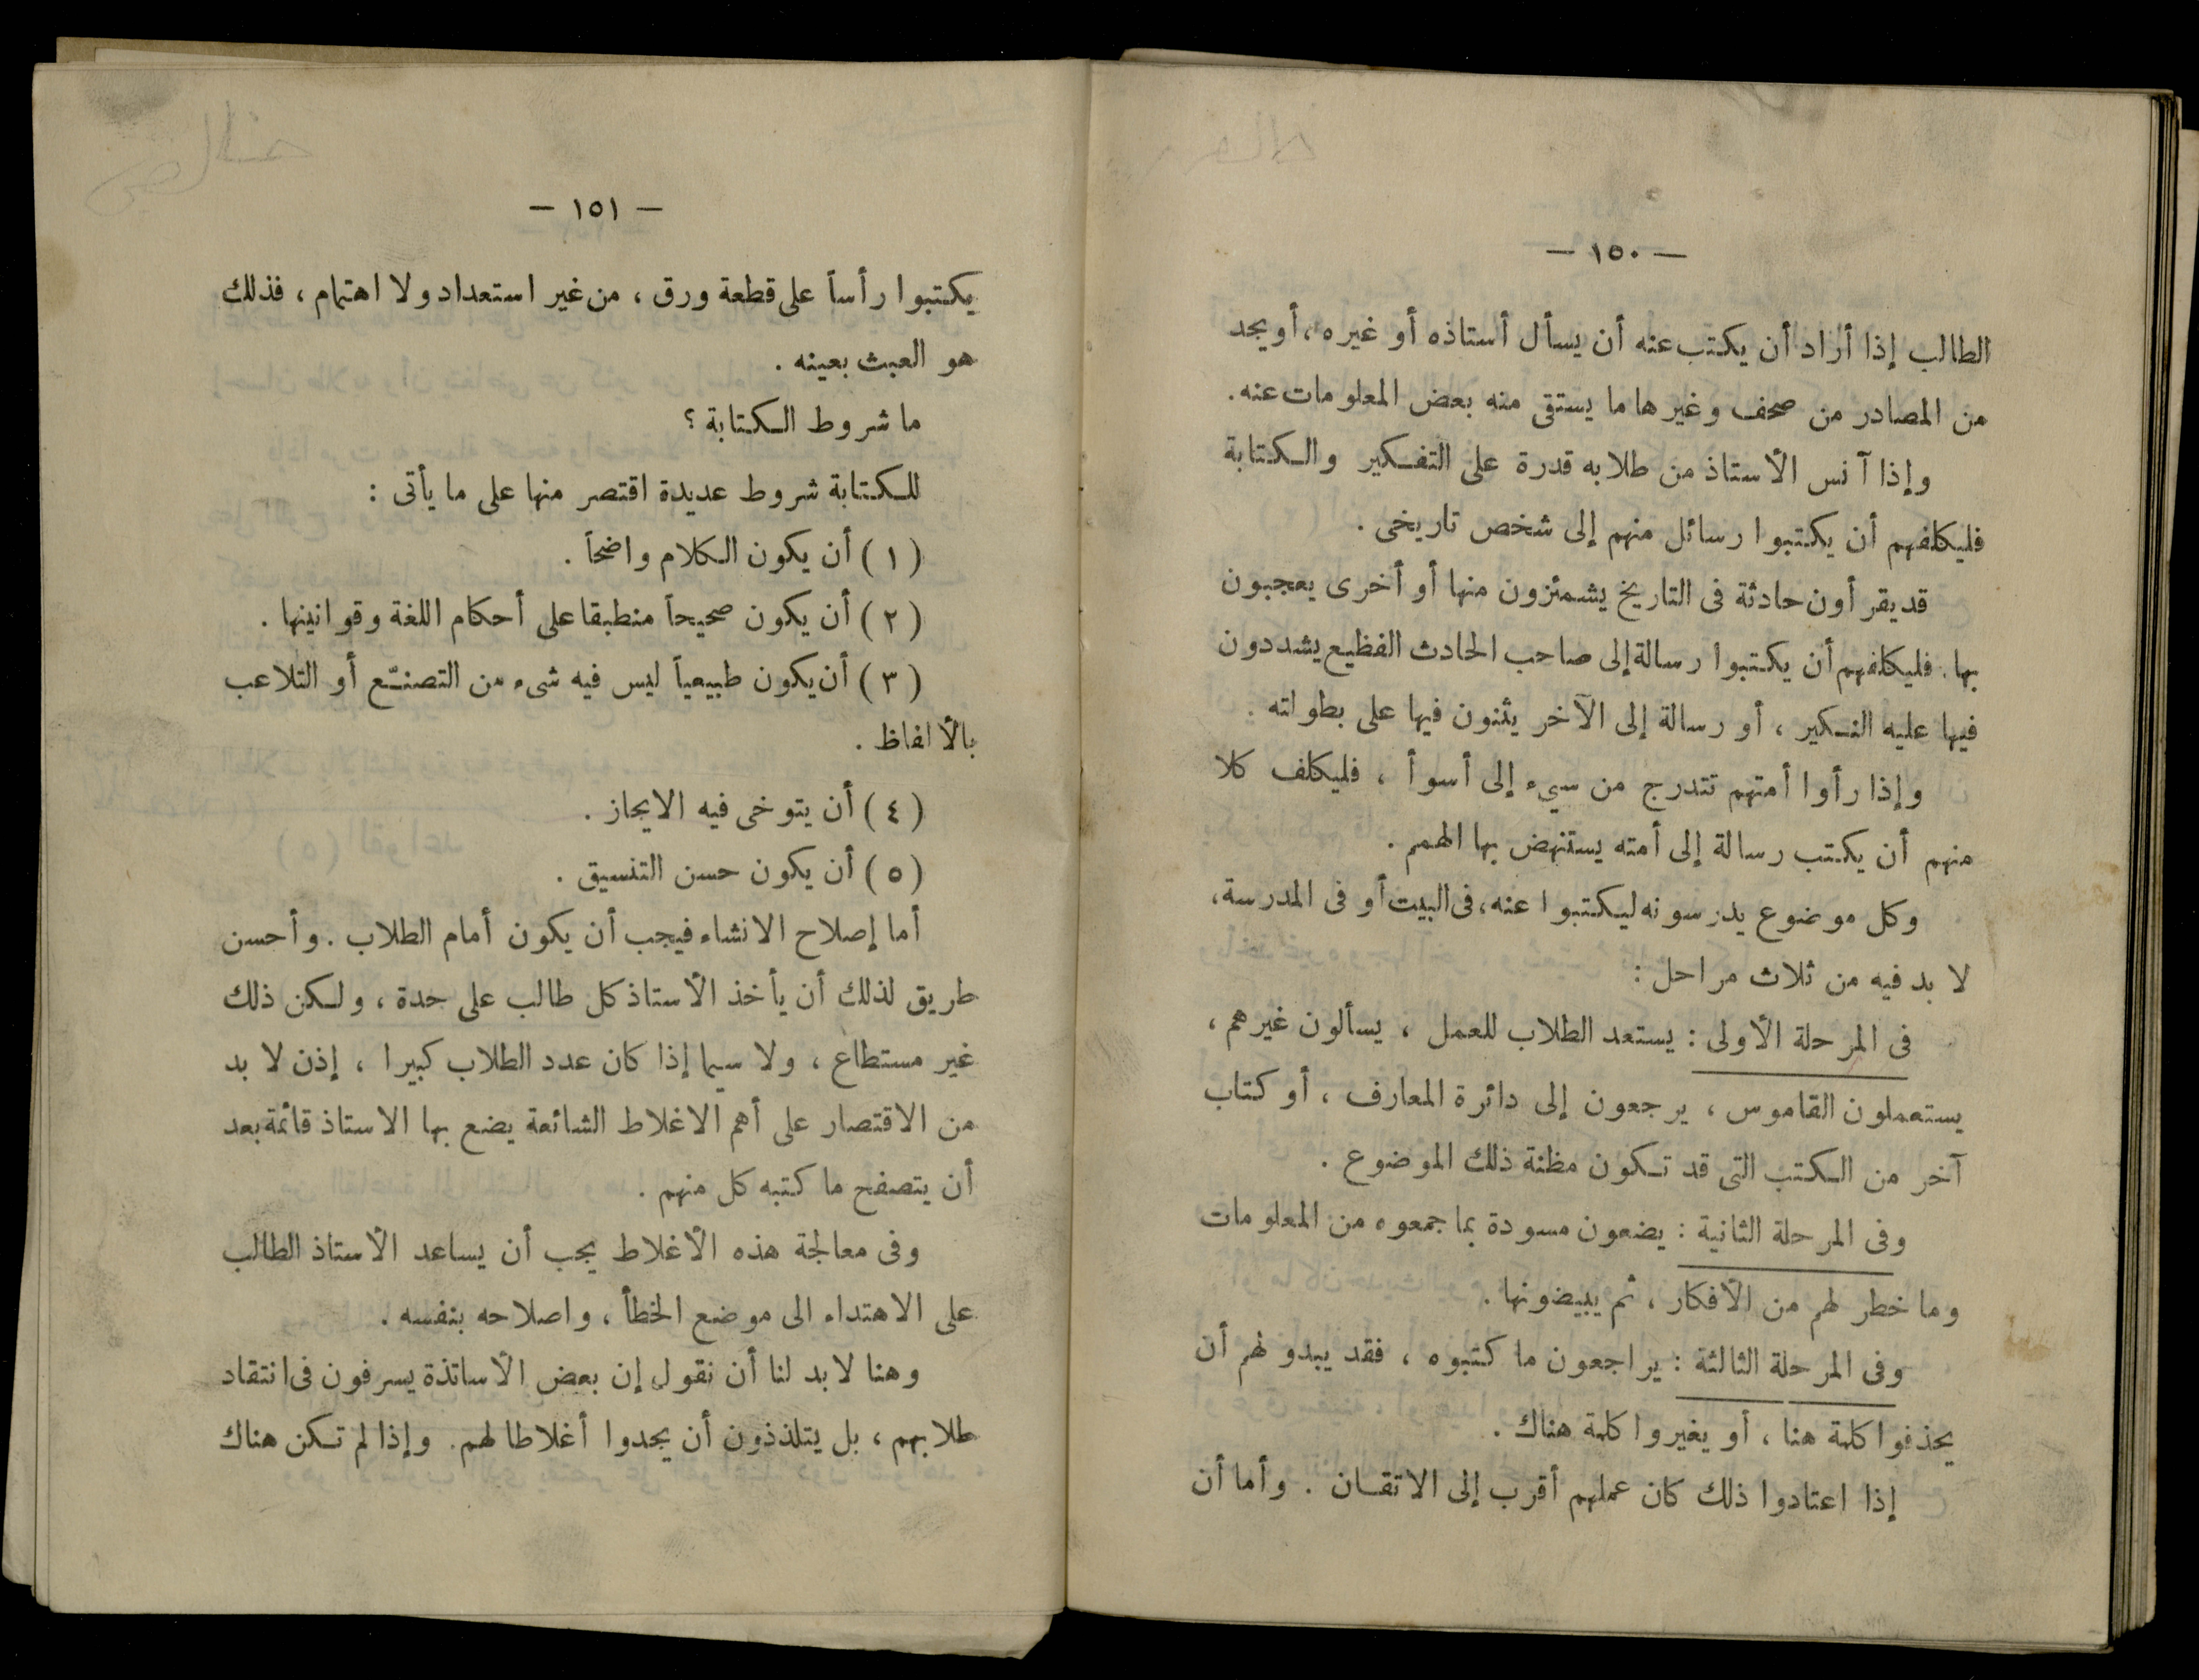 — ١٥٠ —
الطالب إذا أراد أن يكتب عنه أن يسأل أستاذه أو غيره، أو يجد
من المصادر من صحف وغيرها ما يستقى منه بعض المعلومات عنه.
وإذا آنس الأستاذ من طلابه قدرة على التفكير والكتابة
فليكلفهم أن يكتبوا رسائل منهم إلى شخص تاريخى.
قد يقرأون حادثة فى التاريخ يشمئزون منها أو أخرى يعجبون
بها. فليكلفهم أن يكتبوا رسالة إلى صاحب الحادث الفظيع يشددون
فيها عليه النكير، أو رسالة إلى الآخر يثنون فيها على بطولته.
وإذا رأوا أمتهم تتدرج من سيء إلى أسوأ، فليكلف كلا
منهم أن يكتب رسالة إلى أمته يستنهض بها الهمم.
وكل موضوع يدرسونه ليكتبوا عنه، فى البيت أو فى المدرسة،
لا بد فيه من ثلاث مراحل:
فى المرحلة الأولى: يستعد الطلاب للعمل، يسألون غيرهم،
يستعملون القاموس، يرجعون إلى دائرة المعارف، أو كتاب
آخر من الكتب التى قد تكون مظنة ذلك الموضوع.
وفى المرحلة الثانية: يضعون مسودة بما جمعوه من المعلومات
وما خطر لهم من الأفكار، ثم يبيضونها.
وفى المرحلة الثالثة: يراجعون ما كتبوه، فقد يبدو لهم أن
يحذفوا كلمة هنا، أو يغيروا كلمة هناك.
إذا اعتادوا ذلك كان عملهم أقرب إلى الاتقان. وأما أن
— ١٥١ —
يكتبوا رأساً على قطعة ورق، من غير استعداد ولا اهتمام، فذلك
هو العبث بعينه.
ما شروط الكتابة؟
للكتابة شروط عديدة اقتصر منها على ما يأتى:
(١) أن يكون الكلام واضحاً.
(٢) أن يكون صحيحاً منطبقا على أحكام اللغة وقوانينها.
(٣) أن يكون طبيعياً ليس فيه شىء من التصنّع أو التلاعب
بالألفاظ.
(٤) أن يتوخى فيه الايجاز.
(٥) أن يكون حسن التنسيق.
أما إصلاح الانشاء فيجب أن يكون أمام الطلاب. وأحسن
طريق لذلك أن يأخذ الأستاذ كل طالب على حدة، ولكن ذلك
غير مستطاع، ولا سيما إذا كان عدد الطلاب كبيرا، إذن لا بد
من الاقتصار على أهم الاغلاط الشائعة يضع بها الاستاذ قائمة بعد
أن يتصفح ما كتبه كل منهم.
وفى معالجة هذه الأغلاط يجب أن يساعد الأستاذ الطالب
على الاهتداء الى موضع الخطأ، واصلاحه بنفسه.
وهنا لا بد لنا أن نقول إن بعض الأساتذة يسرفون فى انتقاد
طلابهم، بل يتلذذون أن يجدوا أغلاطا لهم. وإذا لم تكن هناك